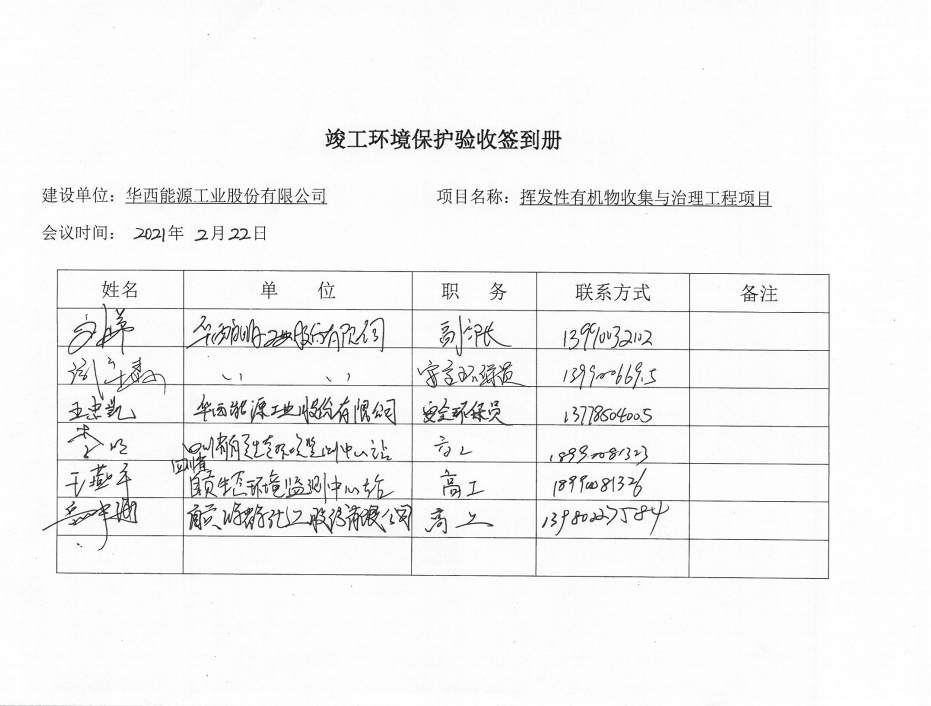 竣工环境保护验收签到册
建设单位：华西能源工业股份有限公司 项目名称：挥发性有机物收集与治理工程项目
会议时间： 2021年 2月22日
姓名 单 位 职 务 联系方式 备注
华西能源工业股份有限公司 副部长 13990032102
〃 〃 安全环保员
王忠凯 华西能源工业股份有限公司 安全环保员 13778504005
李 四川省自贡生态环境监测中心站 高工 18990081323
王燕平 自贡生态环境监测中心站 高工 18990081326
股份有限公司 高工 13980227584